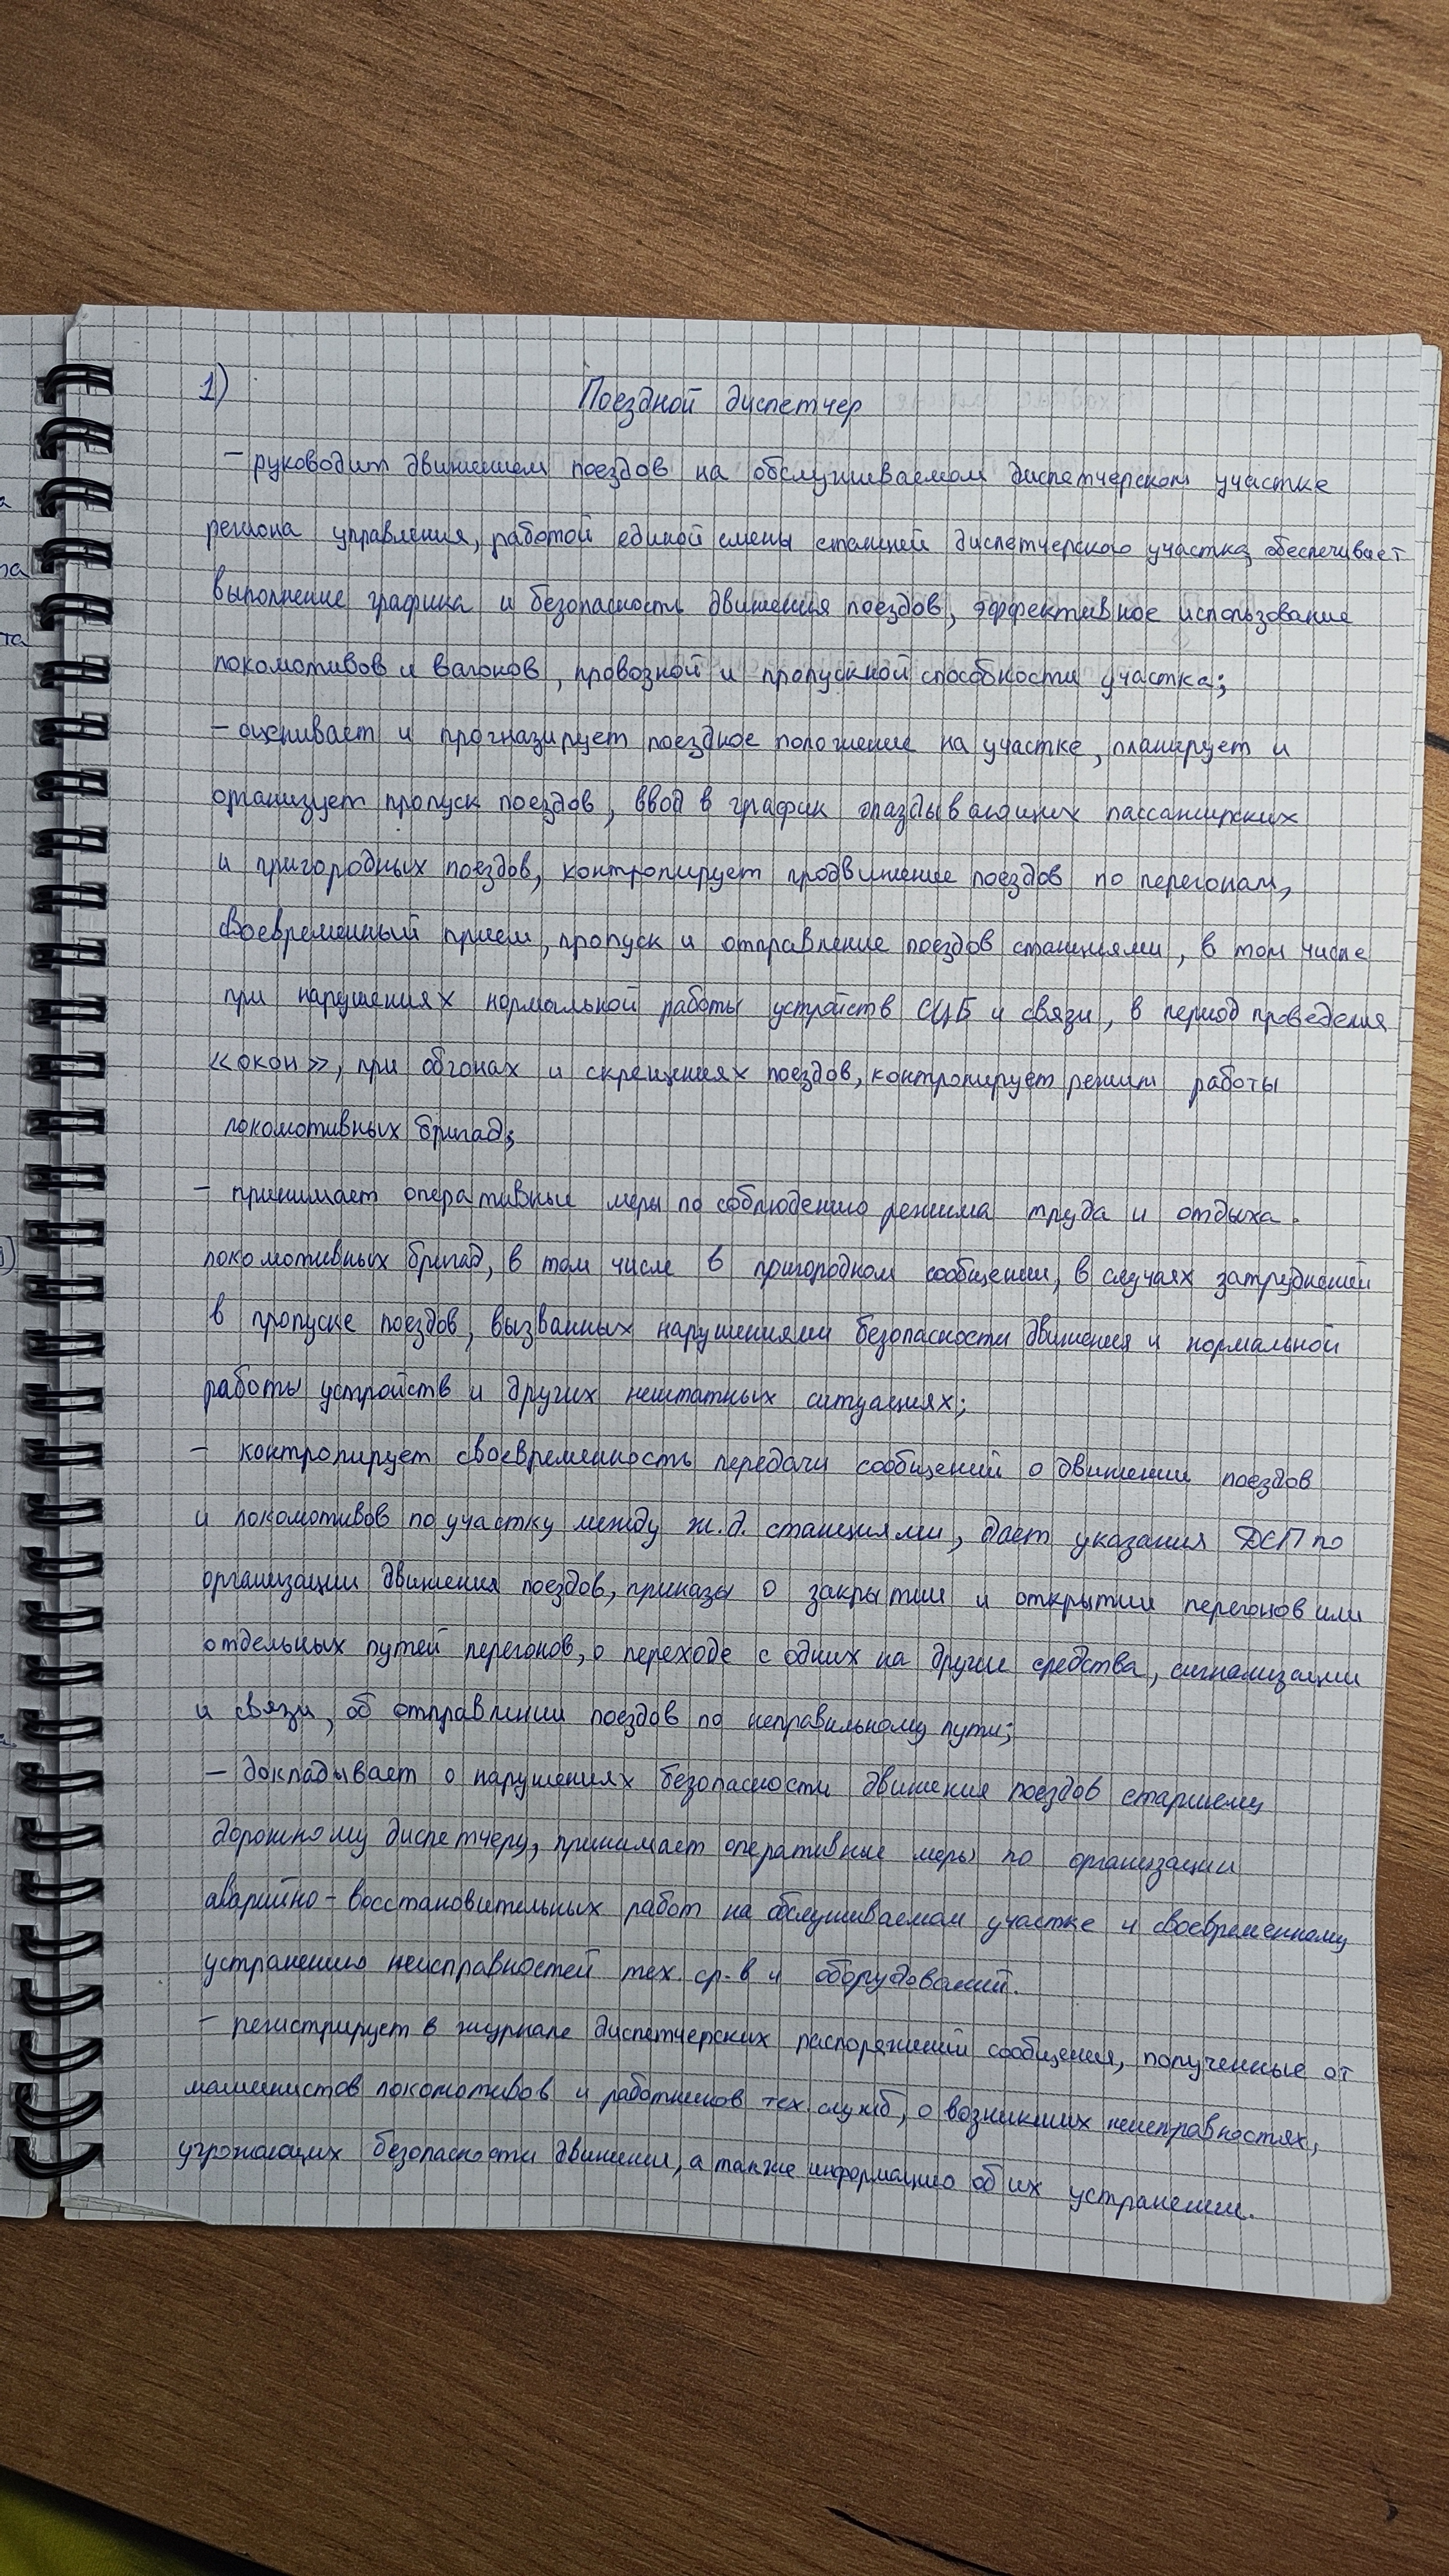 1)
Поездной диспетчер
– руководит движением поездов на обслуживаемом диспетчерском участке
региона управления, работой единой смены станций диспетчерского участка, обеспечивает
выполнение графика и безопасность движения поездов, эффективное использование
локомотивов и вагонов, провозной и пропускной способности участка;
– оценивает и прогназирует поездное положение на участке, планирует и
организует пропуск поездов, ввод в график опаздывающих пассажирских
и пригородных поездов, контролирует продвижение поездов по перегонам,
своевременный прием, пропуск и отправление поездов станциями, в том числе
при нарушениях нормальной работы устройств СЦБ и связи, в период проведения
«окон», при обгонах и скрещениях поездов, контролирует режим работы
локомотивных бригад;
– принимает оперативные меры по соблюдению режима труда и отдыха
локомотивных бригад, в том числе в пригородном сообщении, в случаях затруднений
в пропуске поездов, вызванных нарушениями безопасности движения и нормальной
работы устройств и других нештатных ситуациях;
– контролирует своевременность передачи сообщений о движении поездов
и локомотивов по участку между ж.д. станциями, дает указания ДСП по
организации движения поездов, приказы о закрытии и открытии перегонов или
отдельных путей перегонов, о переходе с одних на другие средства, сигнализации
и связи, об отправлении поездов по неправильному пути;
– докладывает о нарушениях безопасности движения поездов старшему
дорожному диспетчеру, принимает оперативные меры по организации
аварийно-восстановительных работ на обслуживаемом участке и своевременному
устранению неисправностей тех. ср-в и оборудований.
– регистрирует в журнале диспетчерских распоряжений сообщения, полученные от
машинистов локомотивов и работников тех. служб, о возникших неисправностях,
угрожающих безопасности движении, а также информацию об их устранении.